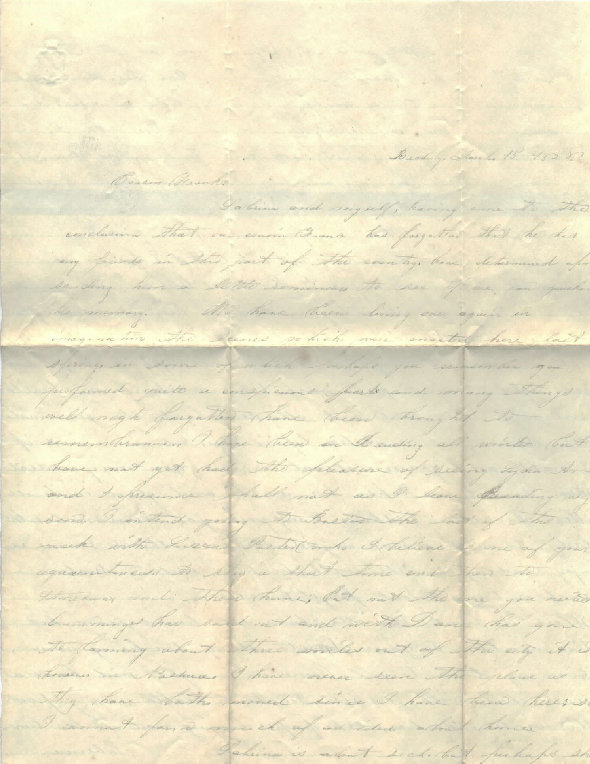 March 15
Cousin Frank
Sabrina and myself, having come to the
conclusion that our cousin Frank has forgotten that he has
any friends in this part of the country have determined upon
sending him a little reminder to see if we can quicken
his memory. We have been living over again in
imagination the scenes which were enacted here last
spring in some of which perhaps you remember you
performed quite a conspicuous part and many things
well nigh forgotten have been brought to
remembrance. I have been in Reading all winter but
have not yet had the pleasure of seeing
and I presume shall not as I leave Reading
soon I intend going to Boston the last of the
week with Foster who I believe is one of your
acquaintances to stay a short time and then to
and then home, but not the one you
Cummings has sold out and has gone
to farming about three miles out of the city it is
known as I have never seen the place as
they have both moved since I have been here so
I cannot form much of an idea about home
Sabrina is about sick but perhaps she